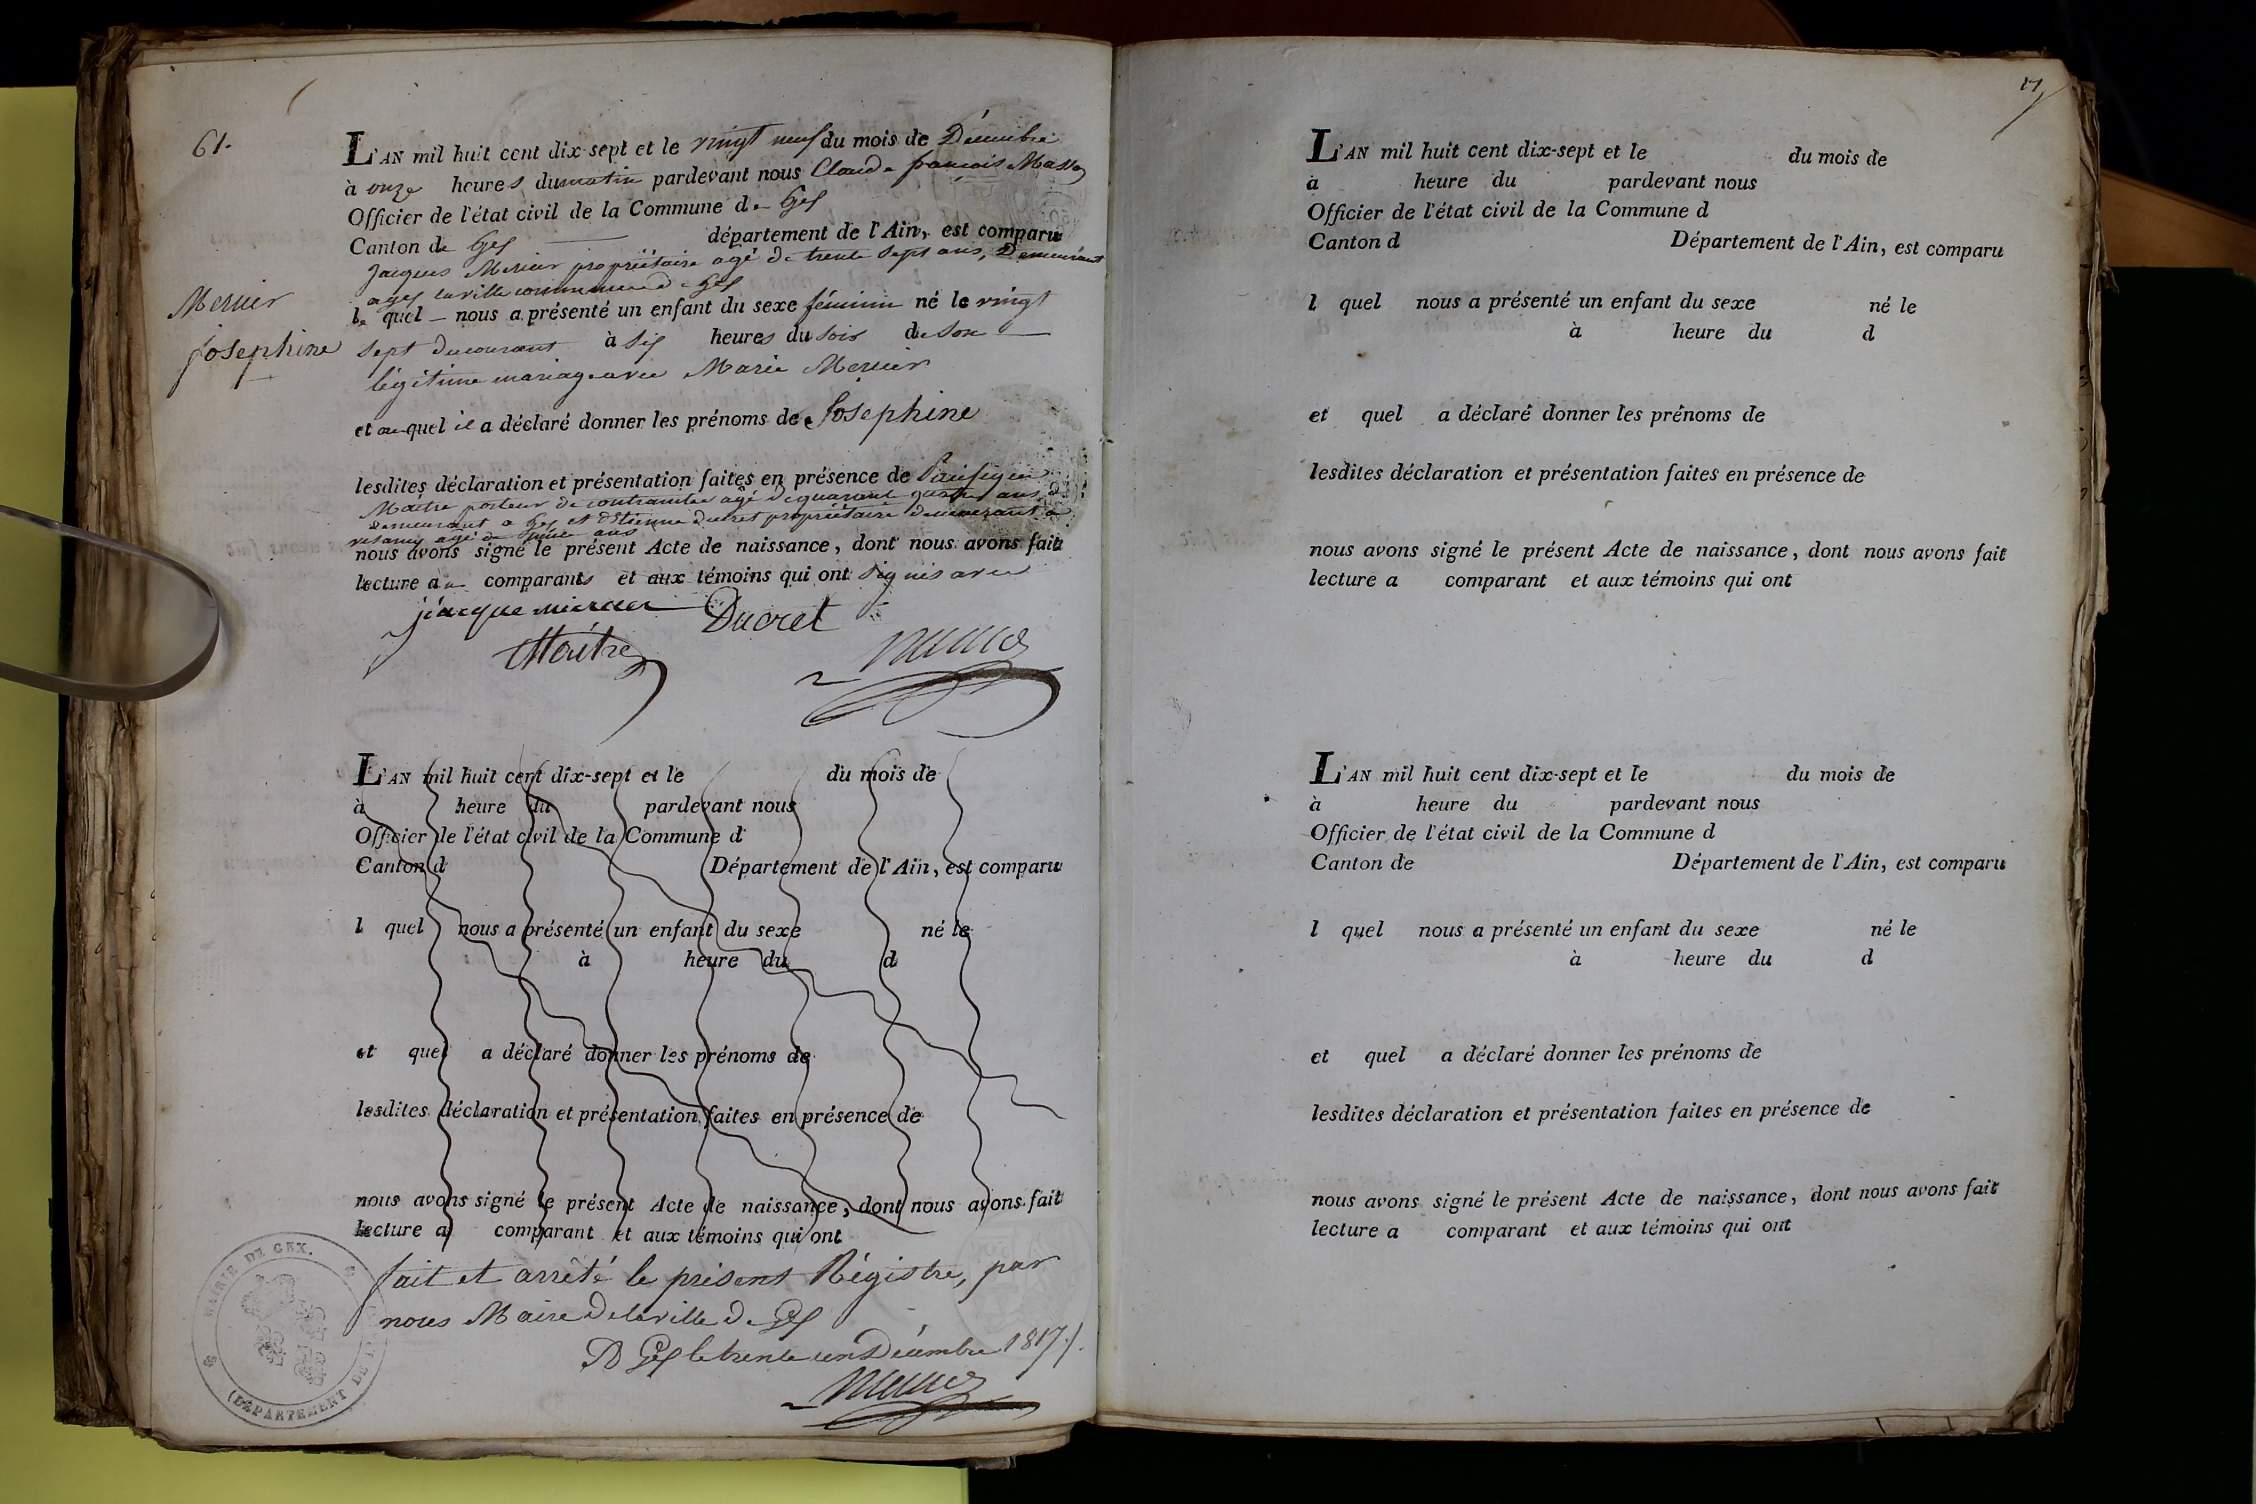 61.
L'AN mil huit cent dix-sept et le vingt neuf du mois de Décembre
à onze heures du matin pardevant nous Claude françois Masson
Officier de l'état civil de la Commune de Gex
Canton de Gex département de l'Ain, est comparu
Jacques Mercier propriétaire agé de trente sept ans, Demeurant
a gex la ville commune de Gex
le quel nous a présenté un enfant du sexe féminin né le vingt
Mercier
Josephine
sept du courant à six heures du soir de son
légitime mariage avec Marie Mercier
et auquel il a déclaré donner les prénoms de Josephine
lesdites déclaration et présentation faites en présence de
Maitre porteur de contrainte agé de quarante quatre ans
demeurant a Gex et Etienne Ducret propriétaire demeurant a
agé de ans
nous avons signé le présent Acte de naissance, dont nous avons fait
lecture au comparants et aux témoins qui ont signés avec
jacque mercier Ducret
Maitre
L'AN mil huit cent dix-sept et le du mois de
à heure du pardevant nous
Officier de l'état civil de la Commune d
Canton d Département de l'Ain, est comparu
l quel nous a présenté un enfant du sexe né le
à heure du d
et quel a déclaré donner les prénoms de
lesdites déclaration et présentation faites en présence de
nous avons signé le présent Acte de naissance, dont nous avons fait
lecture a comparant et aux témoins qui ont
fait et arrêté le présent Régistre, par
nous Maire de la ville de Gex
A Gex le trente un Décembre 1817.
MAIRIE DE GEX.
(DÉPARTEMENT DE L'
17
L'AN mil huit cent dix-sept et le du mois de
à heure du pardevant nous
Officier de l'état civil de la Commune d
Canton d Département de l'Ain, est comparu
l quel nous a présenté un enfant du sexe né le
à heure du d
et quel a déclaré donner les prénoms de
lesdites déclaration et présentation faites en présence de
nous avons signé le présent Acte de naissance, dont nous avons fait
lecture a comparant et aux témoins qui ont
L'AN mil huit cent dix-sept et le du mois de
à heure du pardevant nous
Officier de l'état civil de la Commune d
Canton de Département de l'Ain, est comparu
l quel nous a présenté un enfant du sexe né le
à heure du d
et quel a déclaré donner les prénoms de
lesdites déclaration et présentation faites en présence de
nous avons signé le présent Acte de naissance, dont nous avons fait
lecture a comparant et aux témoins qui ont